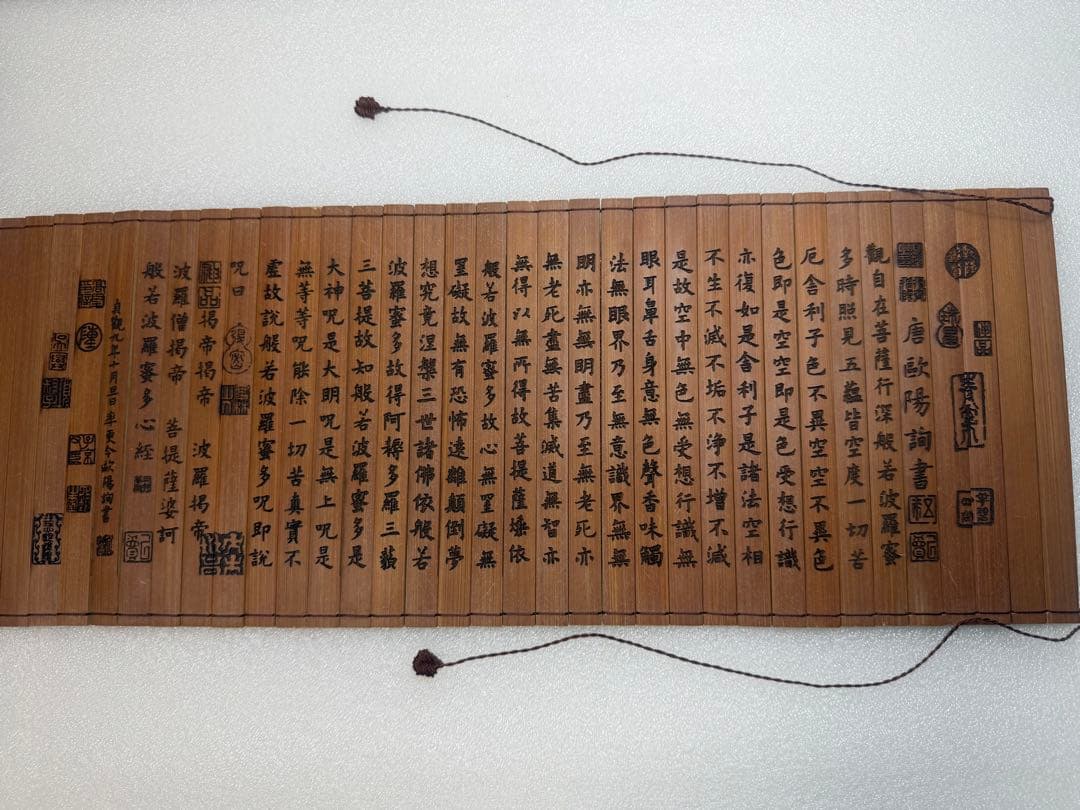 唐歐陽詢書
觀自在菩薩行深般若波羅蜜
多時照見五蘊皆空度一切苦
厄舍利子色不異空空不異色
色即是空空即是色受想行識
亦復如是舍利子是諸法空相
不生不滅不垢不淨不增不減
是故空中無色無受想行識無
眼耳鼻舌身意無色聲香味觸
法無眼界乃至無意識界無無
明亦無無明盡乃至無老死亦
無老死盡無苦集滅道無智亦
無得以無所得故菩提薩埵依
般若波羅蜜多故心無罣礙無
罣礙故無有恐怖遠離顛倒夢
想究竟涅槃三世諸佛依般若
波羅蜜多故得阿耨多羅三藐
三菩提故知般若波羅蜜多是
大神呪是大明呪是無上呪是
無等等呪能除一切苦真實不
虛故說般若波羅蜜多呪即說
呪曰
揭帝揭帝 波羅揭帝
波羅僧揭帝 菩提薩婆訶
般若波羅蜜多心經
貞觀九年十月旦日率更令歐陽詢書